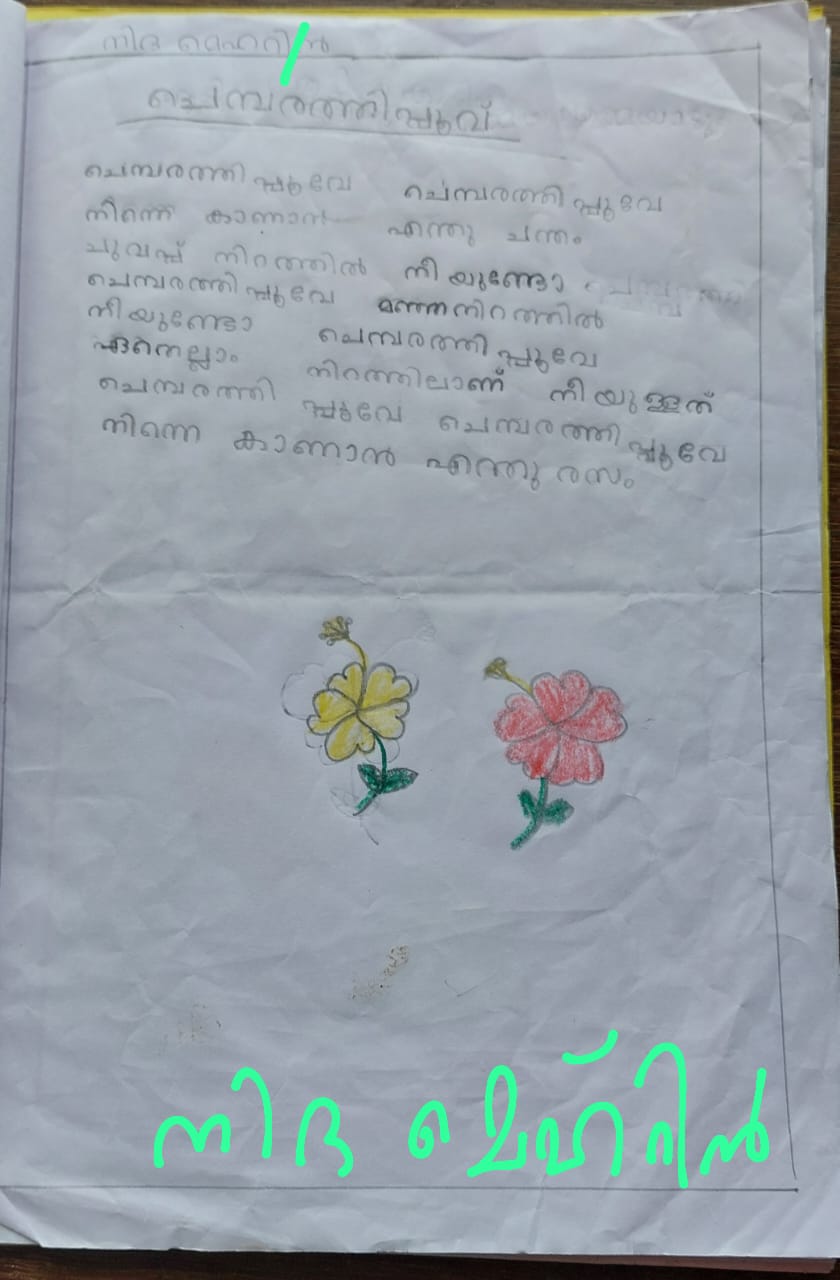 നിദ
ചെമ്പരത്തിപ്പൂവ്
ചെമ്പരത്തിപ്പൂവേ ചെമ്പരത്തിപ്പൂവേ
നിന്നെ കാണാൻ എന്തു ചന്തം
ചുവപ്പ് നിറത്തിൽ നീയുണ്ടോ
ചെമ്പരത്തിപ്പൂവേ മഞ്ഞനിറത്തിൽ
നീയുണ്ടോ ചെമ്പരത്തിപ്പൂവേ
ഏതെല്ലാം നിറത്തിലാണ് നീയുള്ളത്
ചെമ്പരത്തിപ്പൂവേ ചെമ്പരത്തിപ്പൂവേ
നിന്നെ കാണാൻ എന്തു രസം
നിദ മെഹ്റിൻ